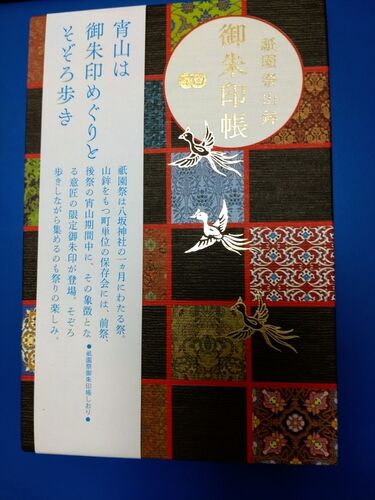 祇園祭山鉾
御朱印帳
宵山は
御朱印めぐりと
そぞろ歩き
祇園祭は八坂神社の一ヵ月にわたる祭。
山鉾をもつ町単位の保存会には、前祭、
後祭の宵山期間中に、その象徴とな
る意匠の限定御朱印が登場。そぞろ
歩きしながら集めるのも祭りの楽しみ。
●祇園祭御朱印帳しおり●